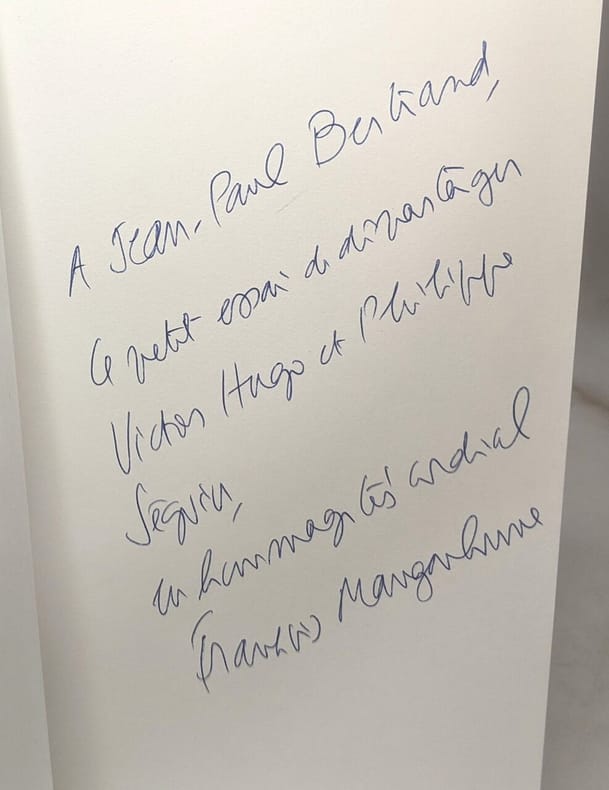 A Jean-Paul Bertrand,
Ce petit essai de départager
Victor Hugo et Philippe
Séguin,
en hommage très cordial
Francis